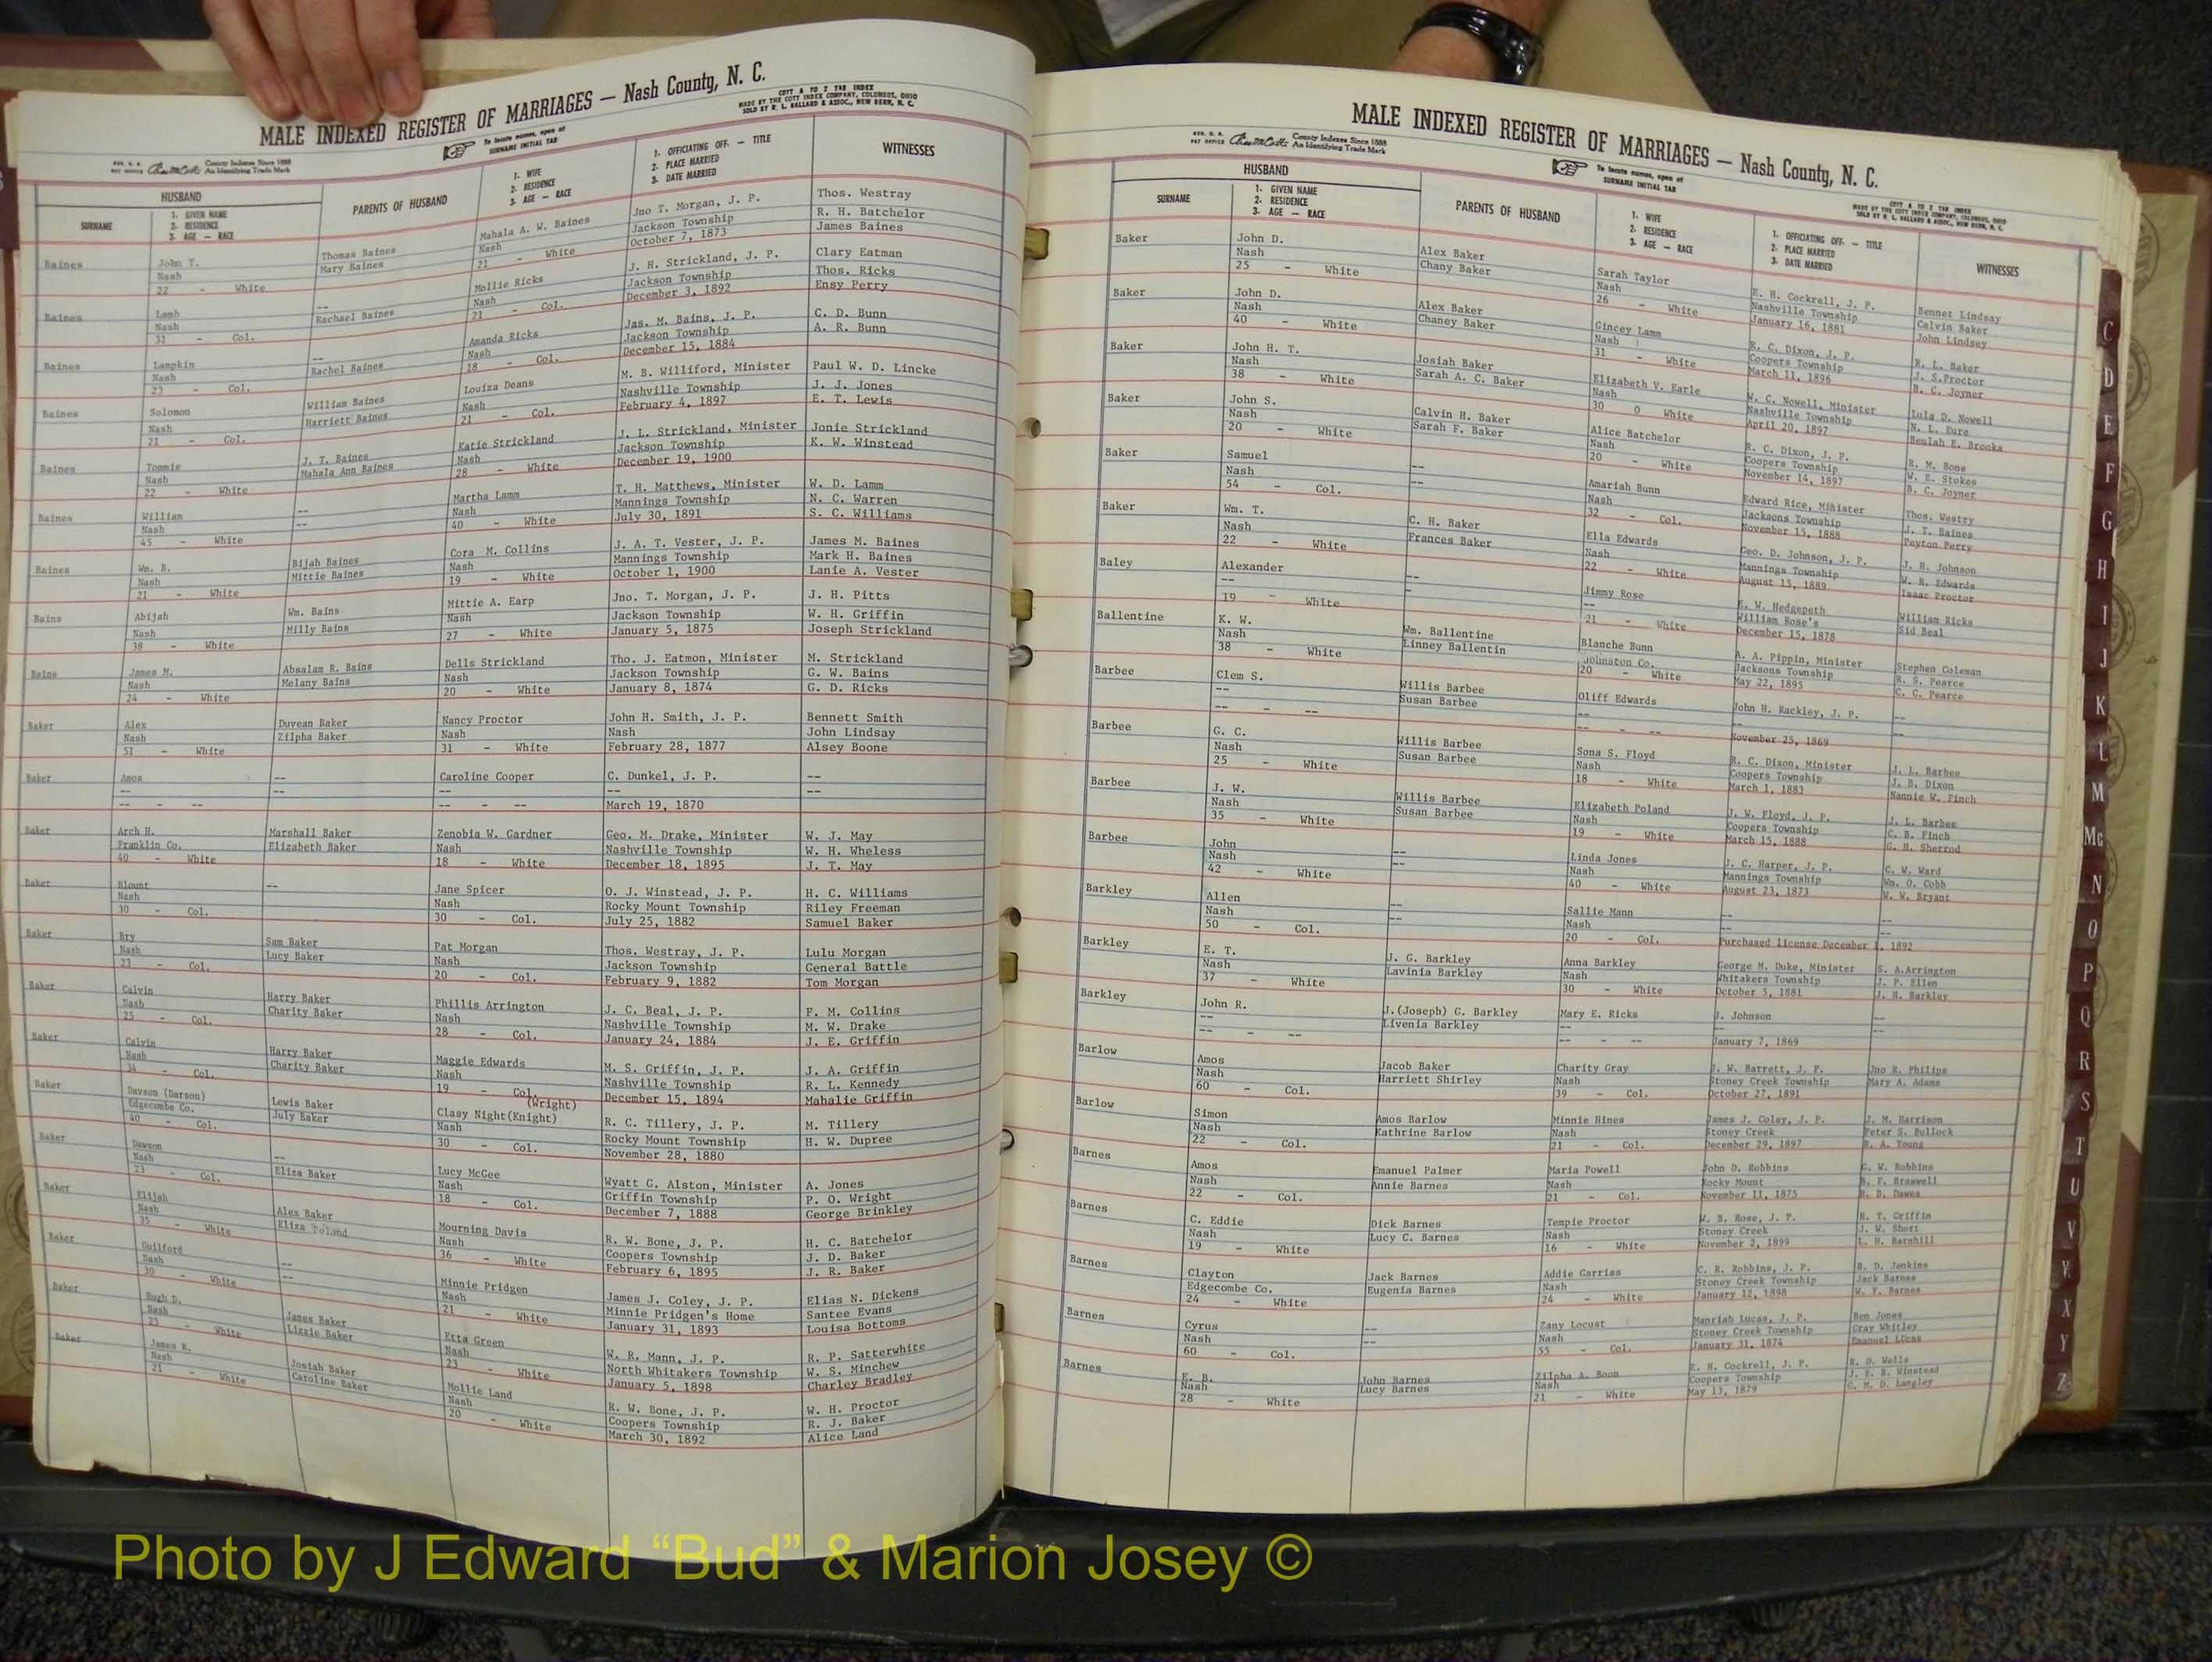 MALE INDEXED REGISTER OF MARRIAGES — Nash County, N. C.
COTT A TO Z TAB INDEX
MADE BY THE COTT INDEX COMPANY, COLUMBUS, OHIO
SOLD BY R. L. BALLARD & ASSOC., NEW BERN, N. C.
To locate names, open at
SURNAME INITIAL TAB
County Indexes Since 1888
An Identifying Trade Mark
HUSBAND
SURNAME
1. GIVEN NAME
2. RESIDENCE
3. AGE — RACE
PARENTS OF HUSBAND
1. WIFE
2. RESIDENCE
3. AGE — RACE
1. OFFICIATING OFF. - TITLE
2. PLACE MARRIED
3. DATE MARRIED
WITNESSES
Baines John T. Thomas Baines Mahala A. W. Baines Jno T. Morgan, J. P. Thos. Westray
Nash Mary Baines Nash Jackson Township R. H. Batchelor
22 - White 21 - White October 7, 1873 James Baines
Baines Lamb -- Mollie Ricks J. H. Strickland, J. P. Clary Eatman
Nash Rachael Baines Nash Jackson Township Thos. Ricks
31 - Col. 21 - Col. December 3, 1892 Ensy Perry
Baines Lampkin -- Amanda Ricks Jas. M. Bains, J. P. C. D. Bunn
Nash Rachel Baines Nash Jackson Township A. R. Bunn
23 - Col. 18 - Col. December 15, 1884
Baines Solomon William Baines Louiza Deans M. B. Williford, Minister Paul W. D. Lincke
Nash Harriett Baines Nash Nashville Township J. J. Jones
21 - Col. 21 - Col. February 4, 1897 E. T. Lewis
Baines Tommie J. T. Baines Katie Strickland J. L. Strickland, Minister Jonie Strickland
Nash Mahala Ann Baines Nash Jackson Township K. W. Winstead
22 - White 28 - White December 19, 1900
Baines William -- Martha Lamm T. H. Matthews, Minister W. D. Lamm
Nash -- Nash Mannings Township N. C. Warren
45 - White 40 - White July 30, 1891 S. C. Williams
Baines Wm. B. Bijah Baines Cora M. Collins J. A. T. Vester, J. P. James M. Baines
Nash Mittie Baines Nash Mannings Township Mark H. Baines
21 - White 19 - White October 1, 1900 Lanie A. Vester
Bains Abijah Wm. Bains Mittie A. Earp Jno. T. Morgan, J. P. J. H. Pitts
Nash Milly Bains Nash Jackson Township W. H. Griffin
38 - White 27 - White January 5, 1875 Joseph Strickland
Bains James M. Absalam R. Bains Dells Strickland Tho. J. Eatmon, Minister M. Strickland
Nash Melany Bains Nash Jackson Township G. W. Bains
24 - White 20 - White January 8, 1874 G. D. Ricks
Baker Alex Duvean Baker Nancy Proctor John H. Smith, J. P. Bennett Smith
Nash Zilpha Baker Nash Nash John Lindsay
51 - White 31 - White February 28, 1877 Alsey Boone
Baker Amos -- Caroline Cooper C. Dunkel, J. P. --
-- -- -- -- --
-- - -- -- - -- March 19, 1870
Baker Arch H. Marshall Baker Zenobia W. Gardner Geo. M. Drake, Minister W. J. May
Franklin Co. Elizabeth Baker Nash Nashville Township W. H. Wheless
40 - White 18 - White December 18, 1895 J. T. May
Baker Blount -- Jane Spicer O. J. Winstead, J. P. H. C. Williams
Nash Nash Rocky Mount Township Riley Freeman
30 - Col. 30 - Col. July 25, 1882 Samuel Baker
Baker Bry Sam Baker Pat Morgan Thos. Westray, J. P. Lulu Morgan
Nash Lucy Baker Nash Jackson Township General Battle
23 - Col. 20 - Col. February 9, 1882 Tom Morgan
Baker Calvin Harry Baker Phillis Arrington J. C. Beal, J. P. F. M. Collins
Nash Charity Baker Nash Nashville Township M. W. Drake
25 - Col. 28 - Col. January 24, 1884 J. E. Griffin
Baker Calvin Harry Baker Maggie Edwards M. S. Griffin, J. P. J. A. Griffin
Nash Charity Baker Nash Nashville Township R. L. Kennedy
34 - Col. 19 - Col. December 15, 1894 Mahalie Griffin
(Wright)
Baker Davson (Darson) Lewis Baker Clasy Night(Knight) R. C. Tillery, J. P. M. Tillery
Edgecombe Co. July Baker Nash Rocky Mount Township H. W. Dupree
40 - Col. 30 - Col. November 28, 1880
Baker Dawson -- Lucy McGee Wyatt G. Alston, Minister A. Jones
Nash Eliza Baker Nash Griffin Township P. O. Wright
23 - Col. 18 - Col. December 7, 1888 George Brinkley
Baker Elijah Alex Baker Mourning Davis R. W. Bone, J. P. H. C. Batchelor
Nash Eliza Poland Nash Coopers Township J. D. Baker
35 - White 36 - White February 6, 1895 J. R. Baker
Baker Guilford -- Minnie Pridgen James J. Coley, J. P. Elias N. Dickens
Nash -- Nash Minnie Pridgen's Home Santee Evans
30 - White 21 - White January 31, 1893 Louisa Bottoms
Baker Hugh D. James Baker Etta Green W. R. Mann, J. P. R. P. Satterwhite
Nash Lizzie Baker Nash North Whitakers Township W. S. Minchew
25 - White 23 - White January 5, 1898 Charley Bradley
Baker James R. Josiah Baker Mollie Land R. W. Bone, J. P. W. H. Proctor
Nash Caroline Baker Nash Coopers Township R. J. Baker
21 - White 20 - White March 30, 1892 Alice Land
MALE INDEXED REGISTER OF MARRIAGES — Nash County, N. C.
County Indexes Since 1888
An Identifying Trade Mark
To locate names, open at
SURNAME INITIAL TAB
COTT A TO Z TAB INDEX
MADE BY THE COTT INDEX COMPANY, COLUMBUS, OHIO
SOLD BY R. L. BALLARD & ASSOC., NEW BERN, N. C.
HUSBAND
SURNAME
1. GIVEN NAME
2. RESIDENCE
3. AGE — RACE
PARENTS OF HUSBAND
1. WIFE
2. RESIDENCE
3. AGE — RACE
1. OFFICIATING OFF. - TITLE
2. PLACE MARRIED
3. DATE MARRIED
WITNESSES
Baker John D. Alex Baker Sarah Taylor E. H. Cockrell, J. P. Bennet Lindsay
Nash Chany Baker Nash Nashville Township Calvin Baker
25 - White 26 - White January 16, 1881 John Lindsey
Baker John D. Alex Baker Gincey Lamm R. C. Dixon, J. P. R. L. Baker
Nash Chaney Baker Nash Coopers Township J. S.Proctor
40 - White 31 - White March 11, 1896 B. C. Joyner
Baker John H. T. Josiah Baker Elizabeth V. Earle W. C. Nowell, Minister Lula D. Nowell
Nash Sarah A. C. Baker Nash Nashville Township N. L. Eure
38 - White 30 0 White April 20, 1897 Beulah E. Brooks
Baker John S. Calvin H. Baker Alice Batchelor R. C. Dixon, J. P. R. M. Bone
Nash Sarah F. Baker Nash Coopers Township W. E. Stokes
20 - White 20 - White November 14, 1897 B. C. Joyner
Baker Samuel -- Amariah Bunn Edward Rice, Minister Thos. Westry
Nash -- Nash Jacksons Township J. T. Baines
54 - Col. 32 - Col. November 15, 1888 Peyton Perry
Baker Wm. T. C. H. Baker Ella Edwards Geo. D. Johnson, J. P. J. H. Johnson
Nash Frances Baker Nash Mannings Township W. R. Edwards
22 - White 22 - White August 15, 1889 Isaac Proctor
Baley Alexander -- Jimmy Rose E. W. Hedgepeth William Ricks
-- - -- William Rose's Sid Beal
19 - White 21 - White December 15, 1878
Ballentine K. W. Wm. Ballentine Blanche Bunn A. A. Pippin, Minister Stephen Coleman
Nash Linney Ballentin Johnston Co. Jacksons Township R. S. Pearce
38 - White 20 - White May 22, 1895 C. C. Pearce
Barbee Clem S. Willis Barbee Oliff Edwards John H. Rackley, J. P. --
-- Susan Barbee -- -- --
-- - -- -- - -- November 25, 1869
Barbee G. C. Willis Barbee Sona S. Floyd R. C. Dixon, Minister J. L. Barbee
Nash Susan Barbee Nash Coopers Township J. B. Dixon
25 - White 18 - White March 1, 1883 Nannie W. Finch
Barbee J. W. Willis Barbee Elizabeth Poland J. W. Floyd, J. P. J. L. Barbee
Nash Susan Barbee Nash Coopers Township C. B. Finch
35 - White 19 - White March 15, 1888 G. H. Sherrod
Barbee John -- Linda Jones J. C. Harper, J. P. C. W. Ward
Nash -- Nash Mannings Township Wm. O. Cobb
42 - White 40 - White August 23, 1873 W. W. Bryant
Barkley Allen -- Sallie Mann -- --
Nash -- Nash -- --
50 - Col. 20 - Col. Purchased license December 1, 1892
Barkley E. T. J. G. Barkley Anna Barkley George M. Duke, Minister S. A.Arrington
Nash Lavinia Barkley Nash Whitakers Township J. P. Ellen
37 - White 30 - White October 5, 1881 J. H. Barkley
Barkley John R. J.(Joseph) G. Barkley Mary E. Ricks J. Johnson --
-- Livenia Barkley -- -- --
-- - -- -- - -- January 7, 1869
Barlow Amos Jacob Baker Charity Gray J. W. Barrett, J. P. Jno R. Philips
Nash Harriett Shirley Nash Stoney Creek Township Mary A. Adams
60 - Col. 39 - Col. October 27, 1891
Barlow Simon Amos Barlow Minnie Hines James J. Coley, J. P. J. M. Harrison
Nash Kathrine Barlow Nash Stoney Creek Peter S. Bullock
22 - Col. 21 - Col. December 29, 1897 R. A. Young
Barnes Amos Emanuel Palmer Maria Powell John D. Robbins G. W. Robbins
Nash Annie Barnes Nash Rocky Mount B. F. Braswell
22 - Col. 21 - Col. November 11, 1875 R. D. Dawes
Barnes C. Eddie Dick Barnes Tempie Proctor W. B. Rose, J. P. R. T. Griffin
Nash Lucy C. Barnes Nash Stoney Creek J. W. Short
19 - White 16 - White November 2, 1899 L. H. Barnhill
Barnes Clayton Jack Barnes Addie Garriss C. R. Robbins, J. P. B. D. Jenkins
Edgecombe Co. Eugenia Barnes Nash Stoney Creek Township Jack Barnes
24 - White 24 - White January 12, 1898 W. F. Barnes
Barnes Cyrus -- Zany Locust Manriah Lucas, J. P. Ben Jones
Nash -- Nash Stoney Creek Township Gray Whitley
60 - Col. 55 - Col. January 31, 1874 Emanuel Lucas
Barnes E. B. John Barnes Zilpha A. Boon E. H. Cockrell, J. P. R. D. Wells
Nash Lucy Barnes Nash Coopers Township J. E. B. Winstead
28 - White 21 - White May 13, 1879 C. M. D. Langley
C
D
E
F
G
H
I
J
K
L
M
Mc
N
O
P
Q
R
S
T
U
V
W
X
Y
Z
Photo by J Edward “Bud” & Marion Josey ©